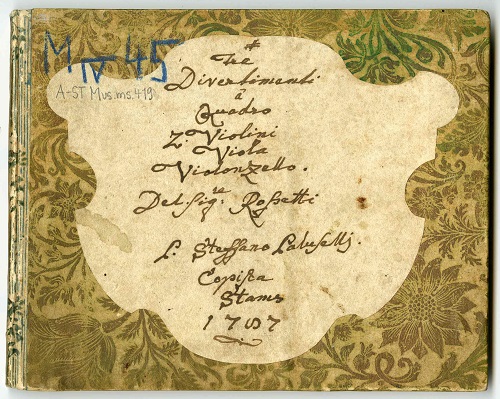 M IV 45
A-ST Mus.ms.419
Tre
Divertimenti
â
Quadro
2. Violini
Viola
Violonzello.
Del Sig.re Rossetti
P. Steffano Paluselli.
Copista
Stams
1787